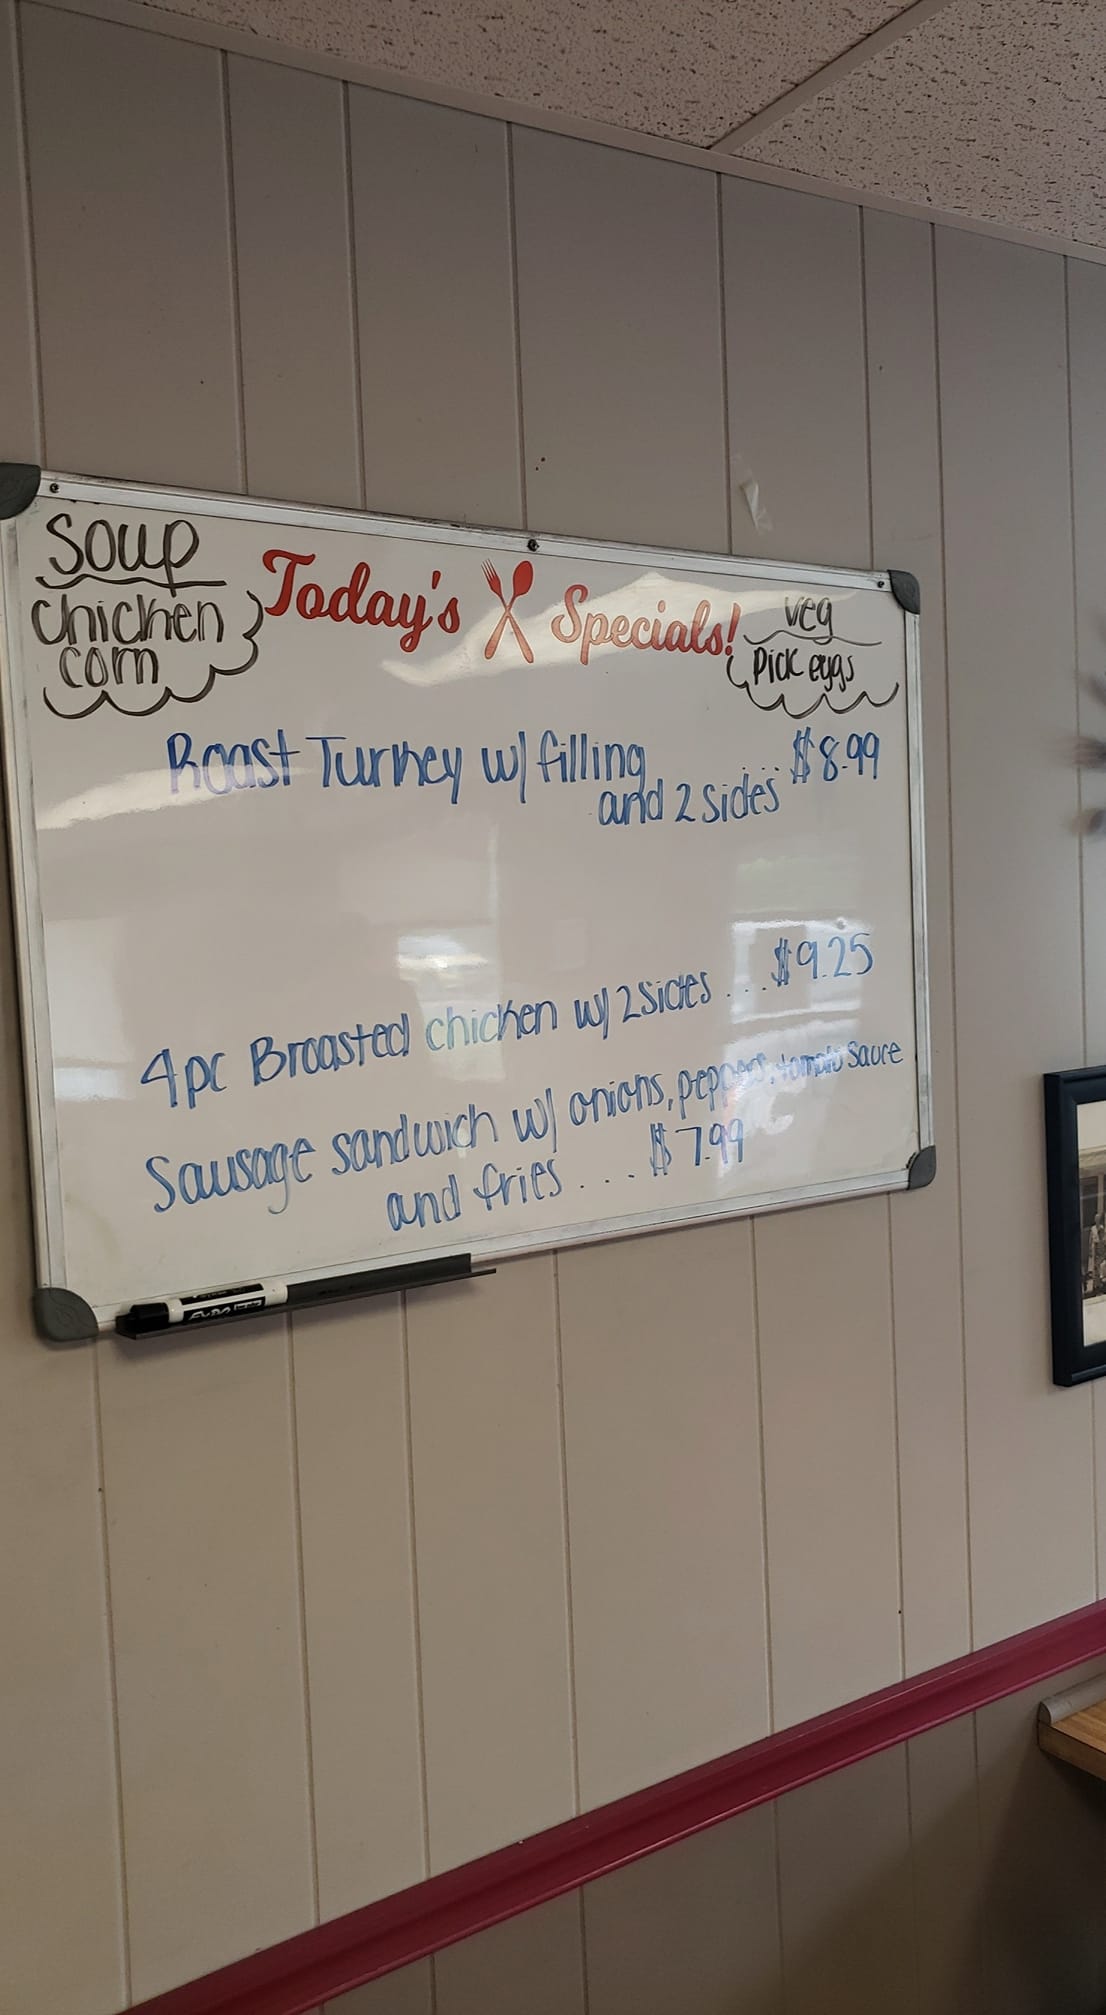 Soup
chicken
corn
Today's Specials!
veg
Pick eggs
Roast Turkey w/ filling
and 2 sides ... $8.99
4pc Broasted chicken w/ 2 sides ... $9.25
Sausage sandwich w/ onions, peppers, tomato sauce
and fries ... $7.99
EXPO